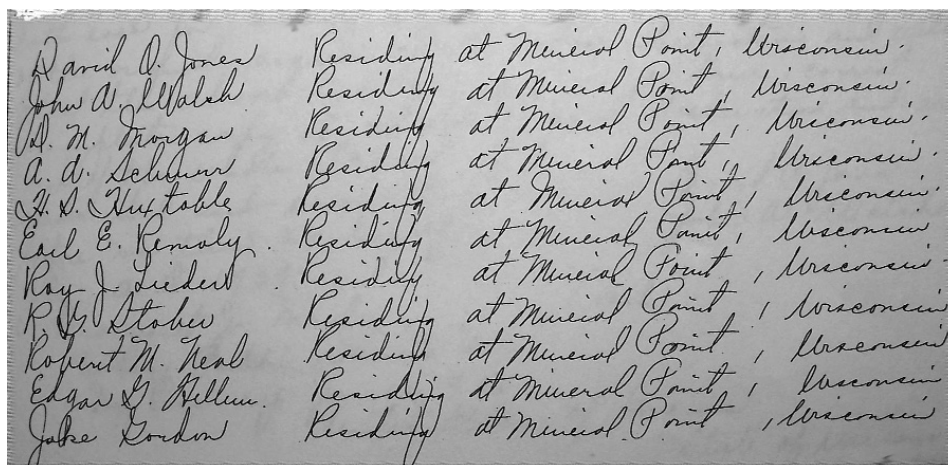 David O. Jones Residing at Mineral Point, Wisconsin.
John A. Walsh Residing at Mineral Point, Wisconsin.
D. M. Morgan Residing at Mineral Point, Wisconsin.
A. A. Schurr Residing at Mineral Point, Wisconsin.
H. S. Huxtable Residing at Mineral Point, Wisconsin.
Earl E. Remoly. Residing at Mineral Point, Wisconsin
Ray J. Liedert. Residing at Mineral Point, Wisconsin.
R. Stober Residing at Mineral Point, Wisconsin
Robert M. Neal Residing at Mineral Point, Wisconsin
Edgar G. Residing at Mineral Point, Wisconsin
Jake Gordon Residing at Mineral Point, Wisconsin